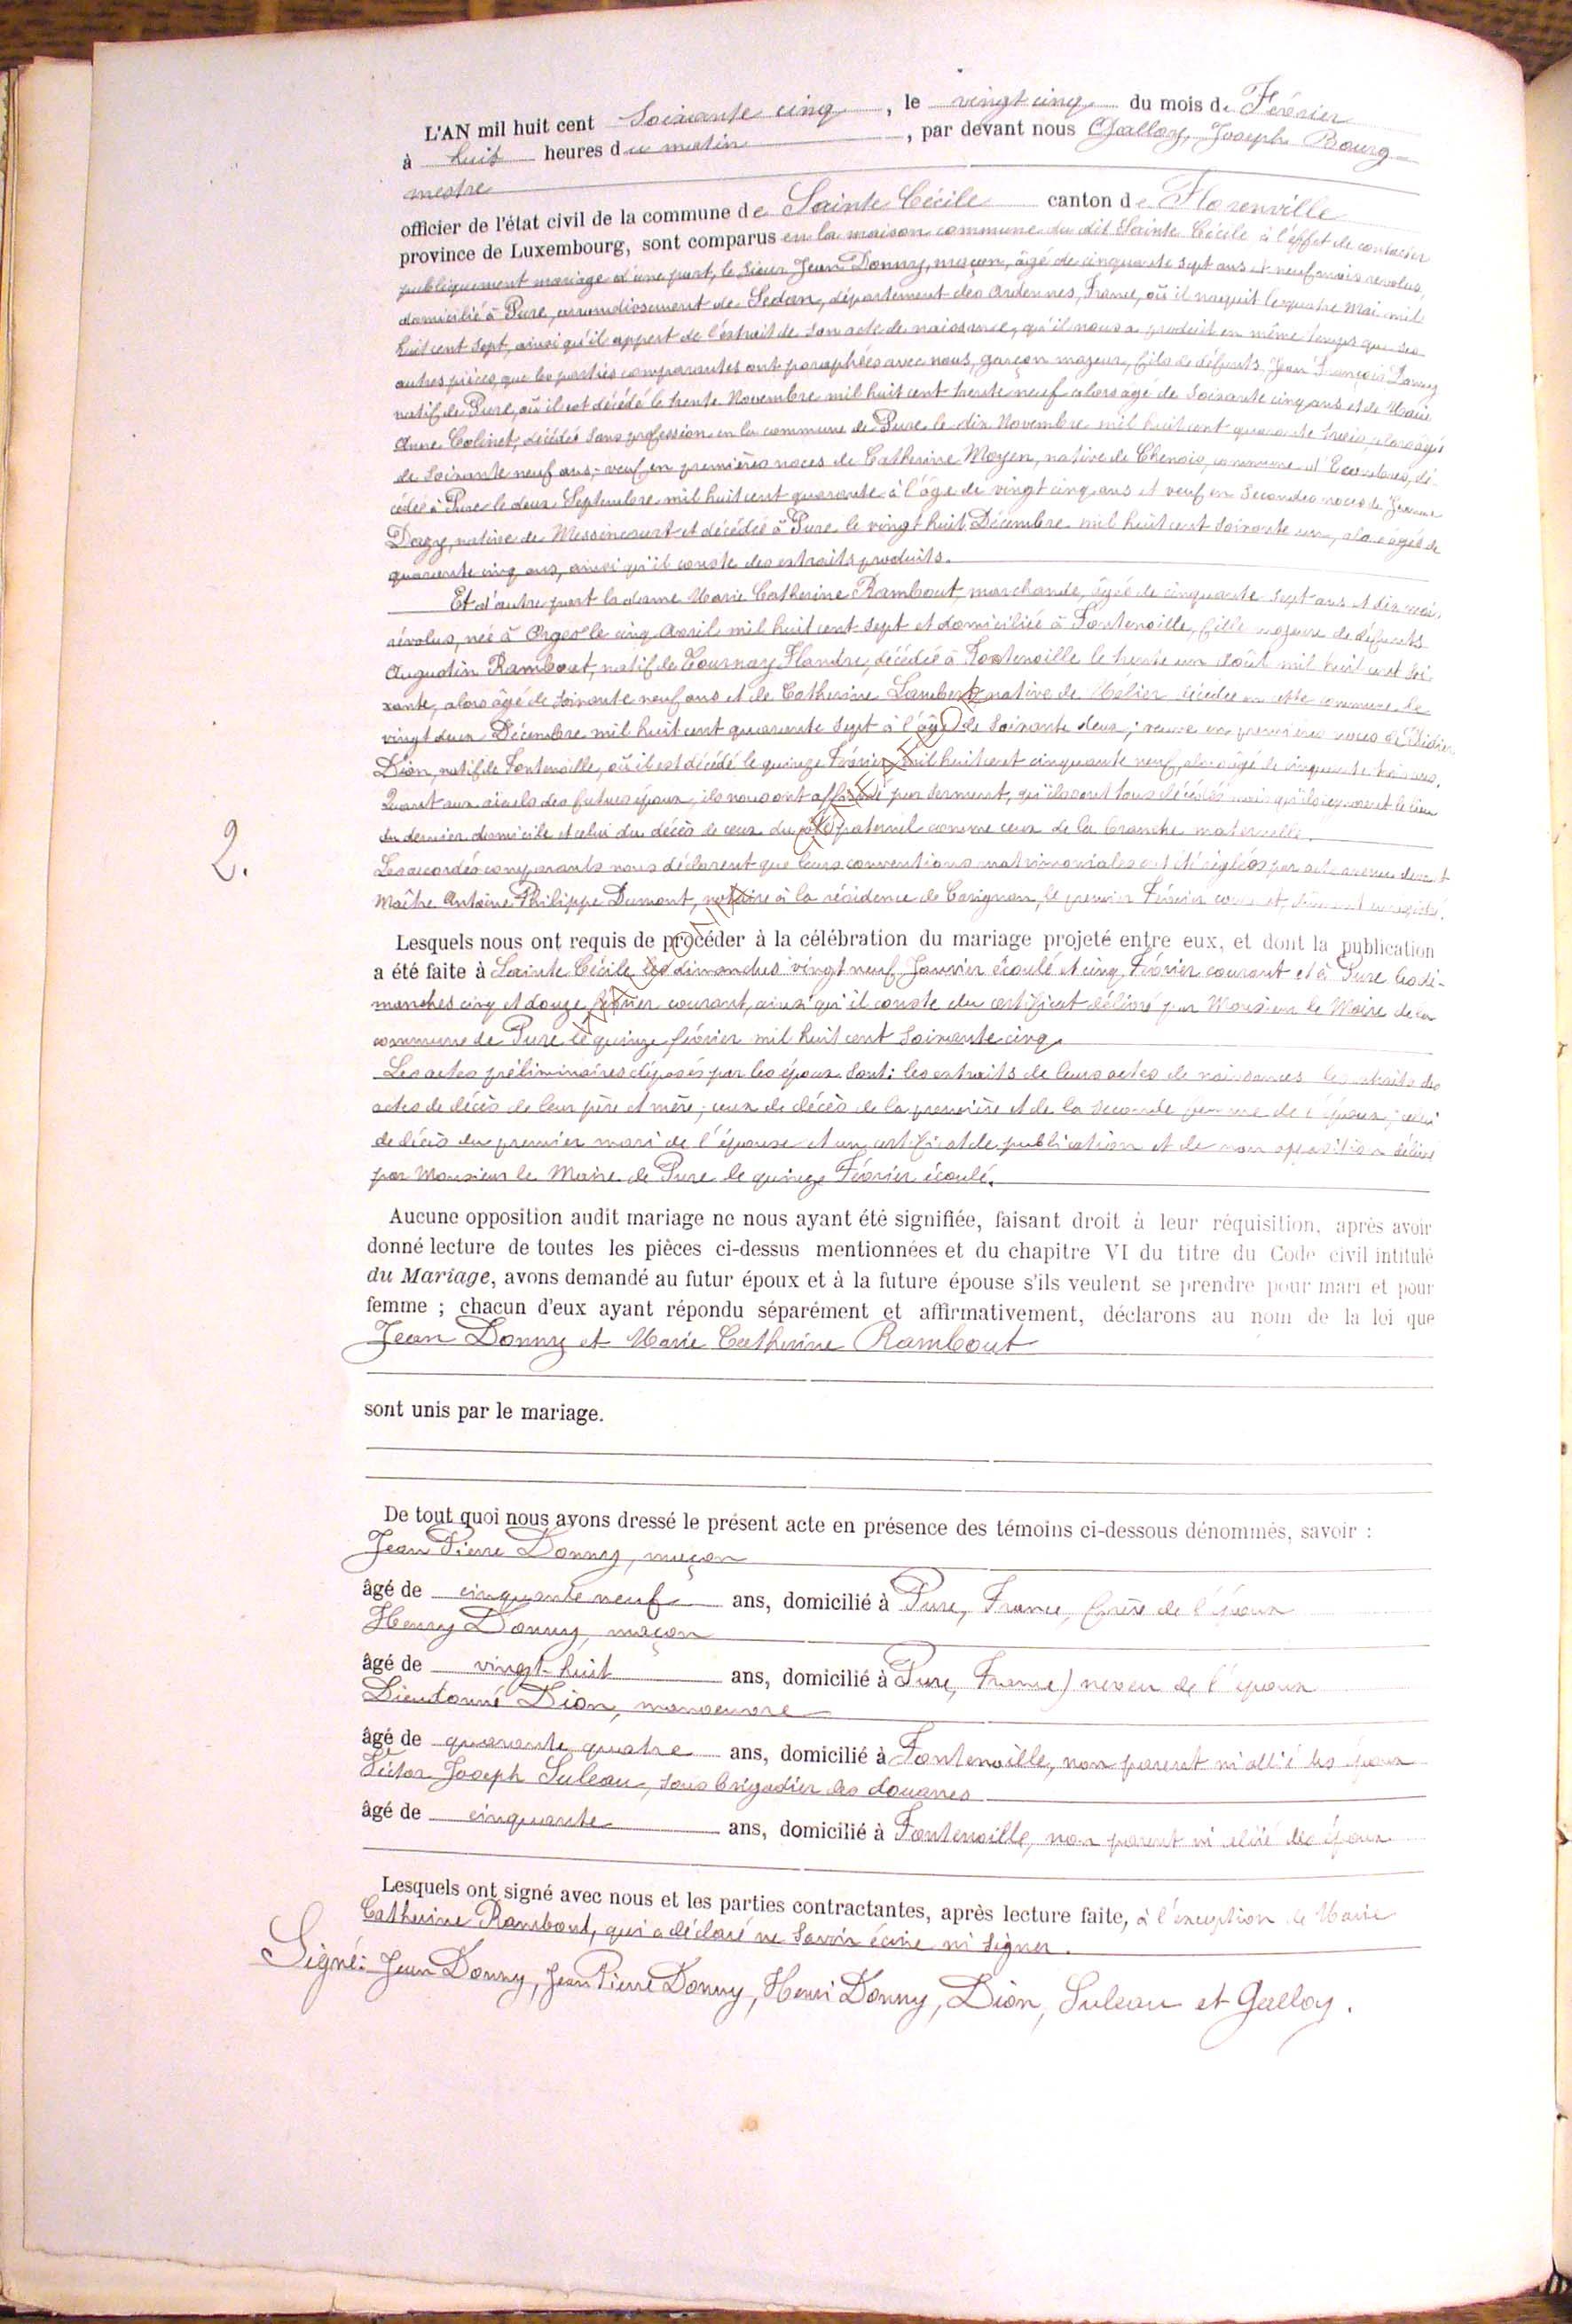 L'AN mil huit cent Soixante cinq, le vingt cinq du mois de Février
à huit heures du matin, par devant nous Galloy, Joseph Bourg-
mestre
officier de l'état civil de la commune de Sainte Cécile canton de Florenville
province de Luxembourg, sont comparus en la maison commune du dit Sainte Cécile à l'effet de contracter
publiquement mariage d'une part, le Sieur Jean Donny, maçon, âgé de cinquante sept ans et neuf mois revolus,
domicilié à Pure, arrondissement de Sedan, département des Ardennes, France, où il naquit le quatre Mai mil
huit cent sept, ainsi qu'il appert de l'extrait de son acte de naissance, qu'il nous a produit en même temps que ses
autres pièces que les parties comparantes ont paraphées avec nous, garçon majeur, fils de défunts Jean François Donny
natif de Pure, où il est décédé le trente Novembre mil huit cent trente neuf alors âgé de Soixante cinq ans et de Marie
Anne Colinet, décédée Sans profession en la commune de Pure le dix Novembre mil huit cent quarante trois, alors âgée
de Soixante neuf ans; veuf en premières noces de Catherine Moyen, native de Chenois, commune d'Ecombres, dé-
cédée à Pure le deux Septembre mil huit cent quarante à l'âge de vingt cinq ans et veuf en Secondes noces de Jeanne
Dagy, native de Messincourt et décédée à Pure le vingt huit Décembre mil huit cent soixante un, alors âgée de
quarante cinq ans, ainsi qu'il conste des extraits produits.
Et d'autre part la dame Marie Catherine Rambout, marchande, âgée de cinquante Sept ans et dix mois
révolus, née à Orgeo le cinq Avril mil huit cent Sept et domiciliée à Fontenoille, fille majeure de défunts
Augustin Rambout, natif de Tournay Flandre, décédé à Fontenoille le trente un Août mil huit cent soi-
xante, alors âgé de Soixante neuf ans et de Catherine Lambert native de Mélier décédée en cette commune le
vingt deux Décembre mil huit cent quarante Sept à l'âge de Soixante deux; veuve en premières noces de Didier
Dion, natif de Fontenoille, où il est décédé le quinze Février mil huit cent cinquante neuf, alors âgé de cinquante trois ans.
Quant aux aïeuls des futurs époux, ils nous ont affirmé par Serment, qu'ils sont tous décédés mais qu'ils ignorent le lieu
du dernier domicile et celui du décès de ceux du côté paternel comme ceux de la branche maternelle.
Les accordés comparants nous déclarent que leurs conventions matrimoniales ont été réglées par acte avenu devant
Maître Antoine Philippe Dumont, notaire à la résidence de Carignan, le premier Février courant, dûment enregistré.
Lesquels nous ont requis de procéder à la célébration du mariage projeté entre eux, et dont la publication
a été faite à Sainte Cécile les dimanches vingt neuf Janvier écoulé et cinq Février courant et à Pure les di-
manches cinq et douze février courant, ainsi qu'il conste du certificat délivré par Monsieur le Maire de la
commune de Pure le quinze février mil huit cent Soixante cinq
Les actes préliminaires déposés par les époux Sont: les extraits de leurs actes de naissances les extraits des
actes de décès de leur père et mère; ceux de décès de la première et de la Seconde femme de l'époux; celui
de décès du premier mari de l'épouse et un certificat de publication et de non opposition délivré
par Monsieur le Maire de Pure le quinze Février écoulé.
Aucune opposition audit mariage ne nous ayant été signifiée, faisant droit à leur réquisition, après avoir
donné lecture de toutes les pièces ci-dessus mentionnées et du chapitre VI du titre du Code civil intitulé
du Mariage, avons demandé au futur époux et à la future épouse s'ils veulent se prendre pour mari et pour
femme ; chacun d'eux ayant répondu séparément et affirmativement, déclarons au nom de la loi que
Jean Donny et Marie Catherine Rambout
sont unis par le mariage.
De tout quoi nous avons dressé le présent acte en présence des témoins ci-dessous dénommés, savoir :
Jean Pierre Donny, maçon
âgé de cinquante neuf ans, domicilié à Pure, France, frère de l'époux
Henry Donny, maçon
âgé de vingt-huit ans, domicilié à Pure, France) neveu de l'époux
Dieudonné Dion, manoeuvre
âgé de quarante quatre ans, domicilié à Fontenoille, non parent ni allié des époux
Victor Joseph Suleau, sous brigadier des douanes
âgé de cinquante ans, domicilié à Fontenoille, non parent ni allié des époux
Lesquels ont signé avec nous et les parties contractantes, après lecture faite, à l'exception de Marie
Catherine Rambout, qui a déclaré ne Savoir écrire ni Signer.
Signé: Jean Donny, Jean Pierre Donny, Henri Donny, Dion, Suleau et Galloy.
2.